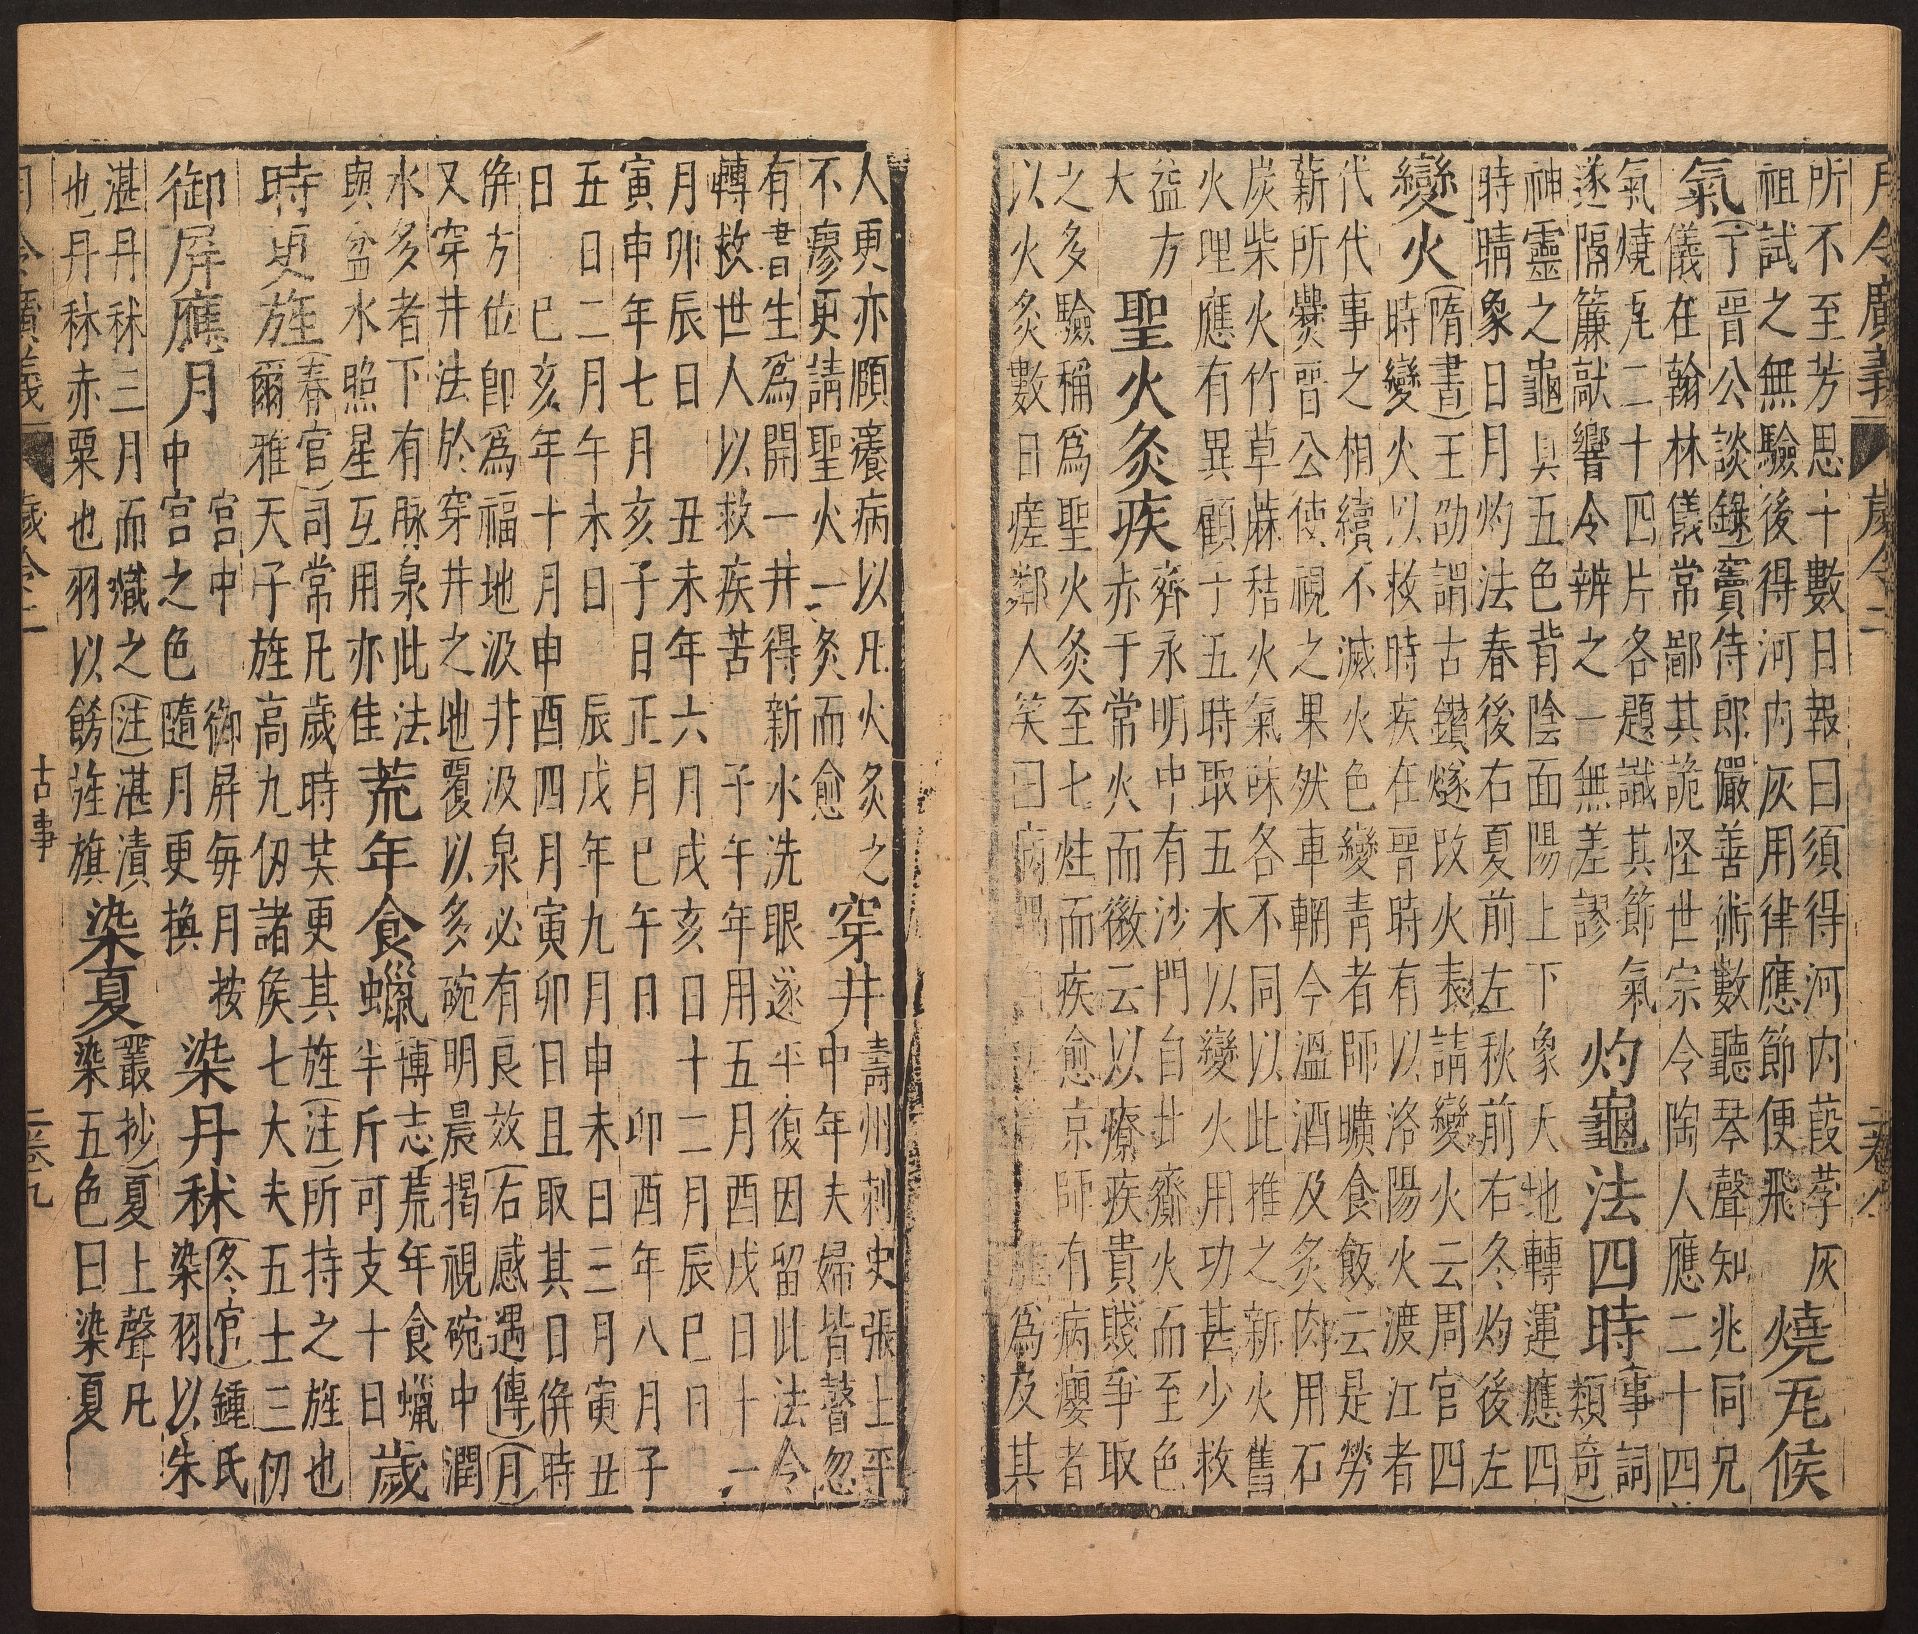 月令廣義 歲令二
所不至芳思十數日報曰須得河内葭莩灰
祖試之無驗後得河内灰用律應節便飛 燒瓦候
氣(丁晉公談錄)竇侍郎儼善術數聽琴聲知兆同兄
儀在翰林儀常鄙其詭怪世宗令陶人應二十四
氣燒瓦二十四片各題識其節氣
遂隔簾敲響令辨之一無差謬 灼龜法四時 事詞類奇)
神靈之龜具五色背陰面陽上下象天地轉運應四
時晴象日月灼法春後右夏前左秋前右冬灼後左
變火(隋書)王劭謂古鑽燧改火表請變火云周官四
時變火以救時疾在晉時有以洛陽火渡江者
代代事之相續不滅火色變青者師曠食飯云是勞
薪所爨晉公使視之果然車輞今溫酒及炙肉用石
炭柴火竹草蔴秸火氣味各不同以此推之新火舊
火理應有異顧于五時取五木以變火用功甚少救
益方
大 聖火灸疾 齊永明中有沙門自北齎火而至色
赤于常火而微云以療疾貴賤爭取
之多驗稱爲聖火灸至七炷而疾愈京師有病癭者
以火炙數日瘥鄰人笑曰病 爲及其
人更亦願瘥病以凡火炙之
不瘳更請聖火一炙而愈 穿井 壽州刺史張上平
中年夫婦皆瞽忽
有書生爲開一井得新水洗眼遂平復因留此法令
轉救世人以救疾苦 子午年用五月酉戌日十一
月卯辰日 丑未年六月戌亥日十二月辰巳日
寅申年七月亥子日正月巳午日 卯酉年八月子
丑日二月午未日 辰戌年九月申未日三月寅丑
日 巳亥年十月申酉四月寅卯日且取其日併時
併方位卽爲福地汲井汲泉必有良效(右感遇傳)(月
又穿井法於穿井之地覆以多碗明晨揭視碗中潤
水多者下有脉泉此法
與盆水照星互用亦佳 荒年食蠟 博志)荒年食蠟
半斤可支十日 歲
時更旌(春官)司常凡歲時共更其旌(注)所持之旌也
爾雅天子旌高九仞諸侯七大夫五士三仞
御屏應月 宮中 御屏每月按
中宮之色隨月更換 染丹秫(冬官)鍾氏
染羽以朱
湛丹秫三月而熾之(注)湛漬
也丹秫赤粟也羽以餙旌旗 染夏(叢抄)夏上聲凡
染五色曰染夏
月令廣義 歲令二 古事 二卷九